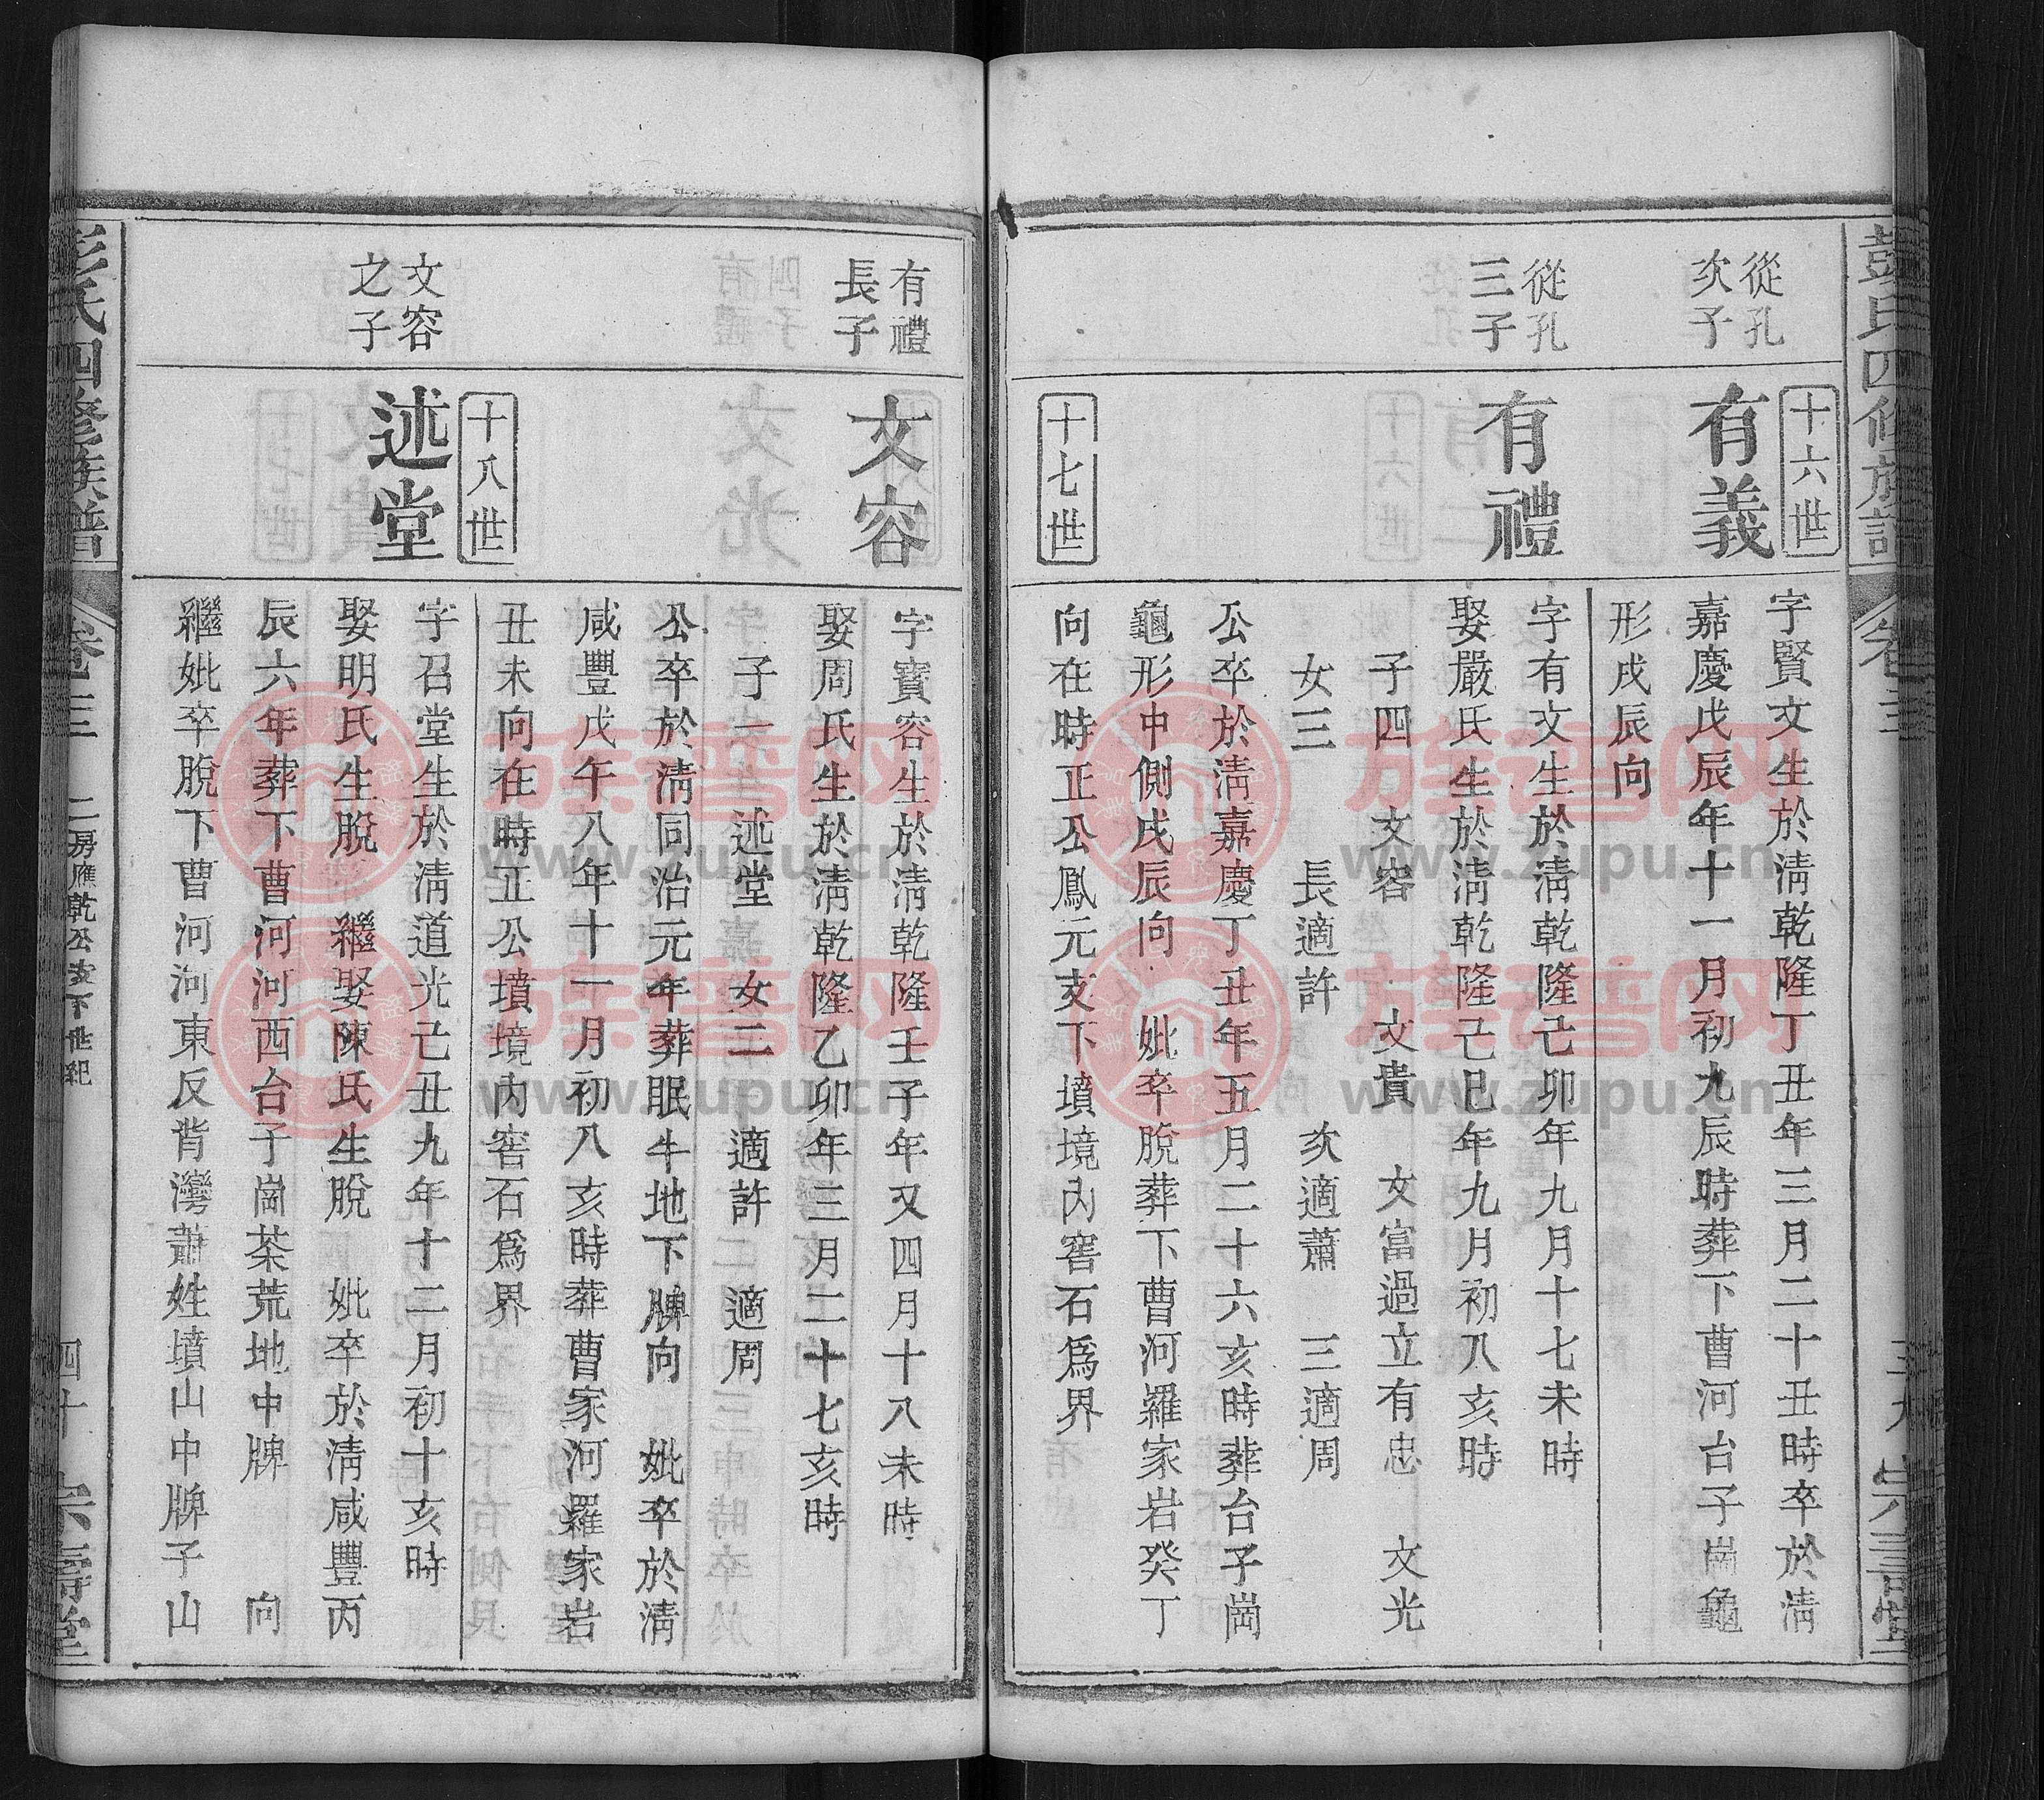 彭氏四修族譜
卷三
宗壽堂
十六世
從孔
次子
有義
字賢文生於淸乾隆丁丑年三月二十丑時卒於淸
嘉慶戊辰年十一月初九辰時葬下曹河台子崗龜
形戌辰向
從孔
三子
有禮
字有文生於淸乾隆己卯年九月十七未時
娶嚴氏生於淸乾隆己巳年九月初八亥時
子四 文容 文貴 文富過立有忠 文光
女三 長適許 次適蕭 三適周
公卒於淸嘉慶丁丑年五月二十六亥時葬台子崗
龜形中側戌辰向 妣卒脫葬下曹河羅家岩癸丁
向在時正公鳳元支下墳境內窖石爲界
十七世
有禮
長子
文容
字寶容生於淸乾隆壬子年又四月十八未時
娶周氏生於淸乾隆乙卯年三月二十七亥時
子一 述堂 女二 適許 適周
公卒於淸同治元年葬眠牛地下牌向 妣卒於淸
咸豐戊午八年十一月初八亥時葬曹家河羅家岩
丑未向在時正公墳境內窖石爲界
十八世
文容
之子
述堂
字召堂生於淸道光己丑九年十二月初十亥時
娶明氏生脫 繼娶陳氏生脫 妣卒於淸咸豐丙
辰六年葬下曹河河西台子崗茶荒地中牌 向
繼妣卒脫下曹河河東反背灣蕭姓墳山中牌子山
彭氏四修族譜
卷三
二房應乾公支下世紀
四十
宗壽堂
族譜网
www.zupu.cn
族譜网
www.zupu.cn
族譜网
www.zupu.cn
族譜网
www.zupu.cn